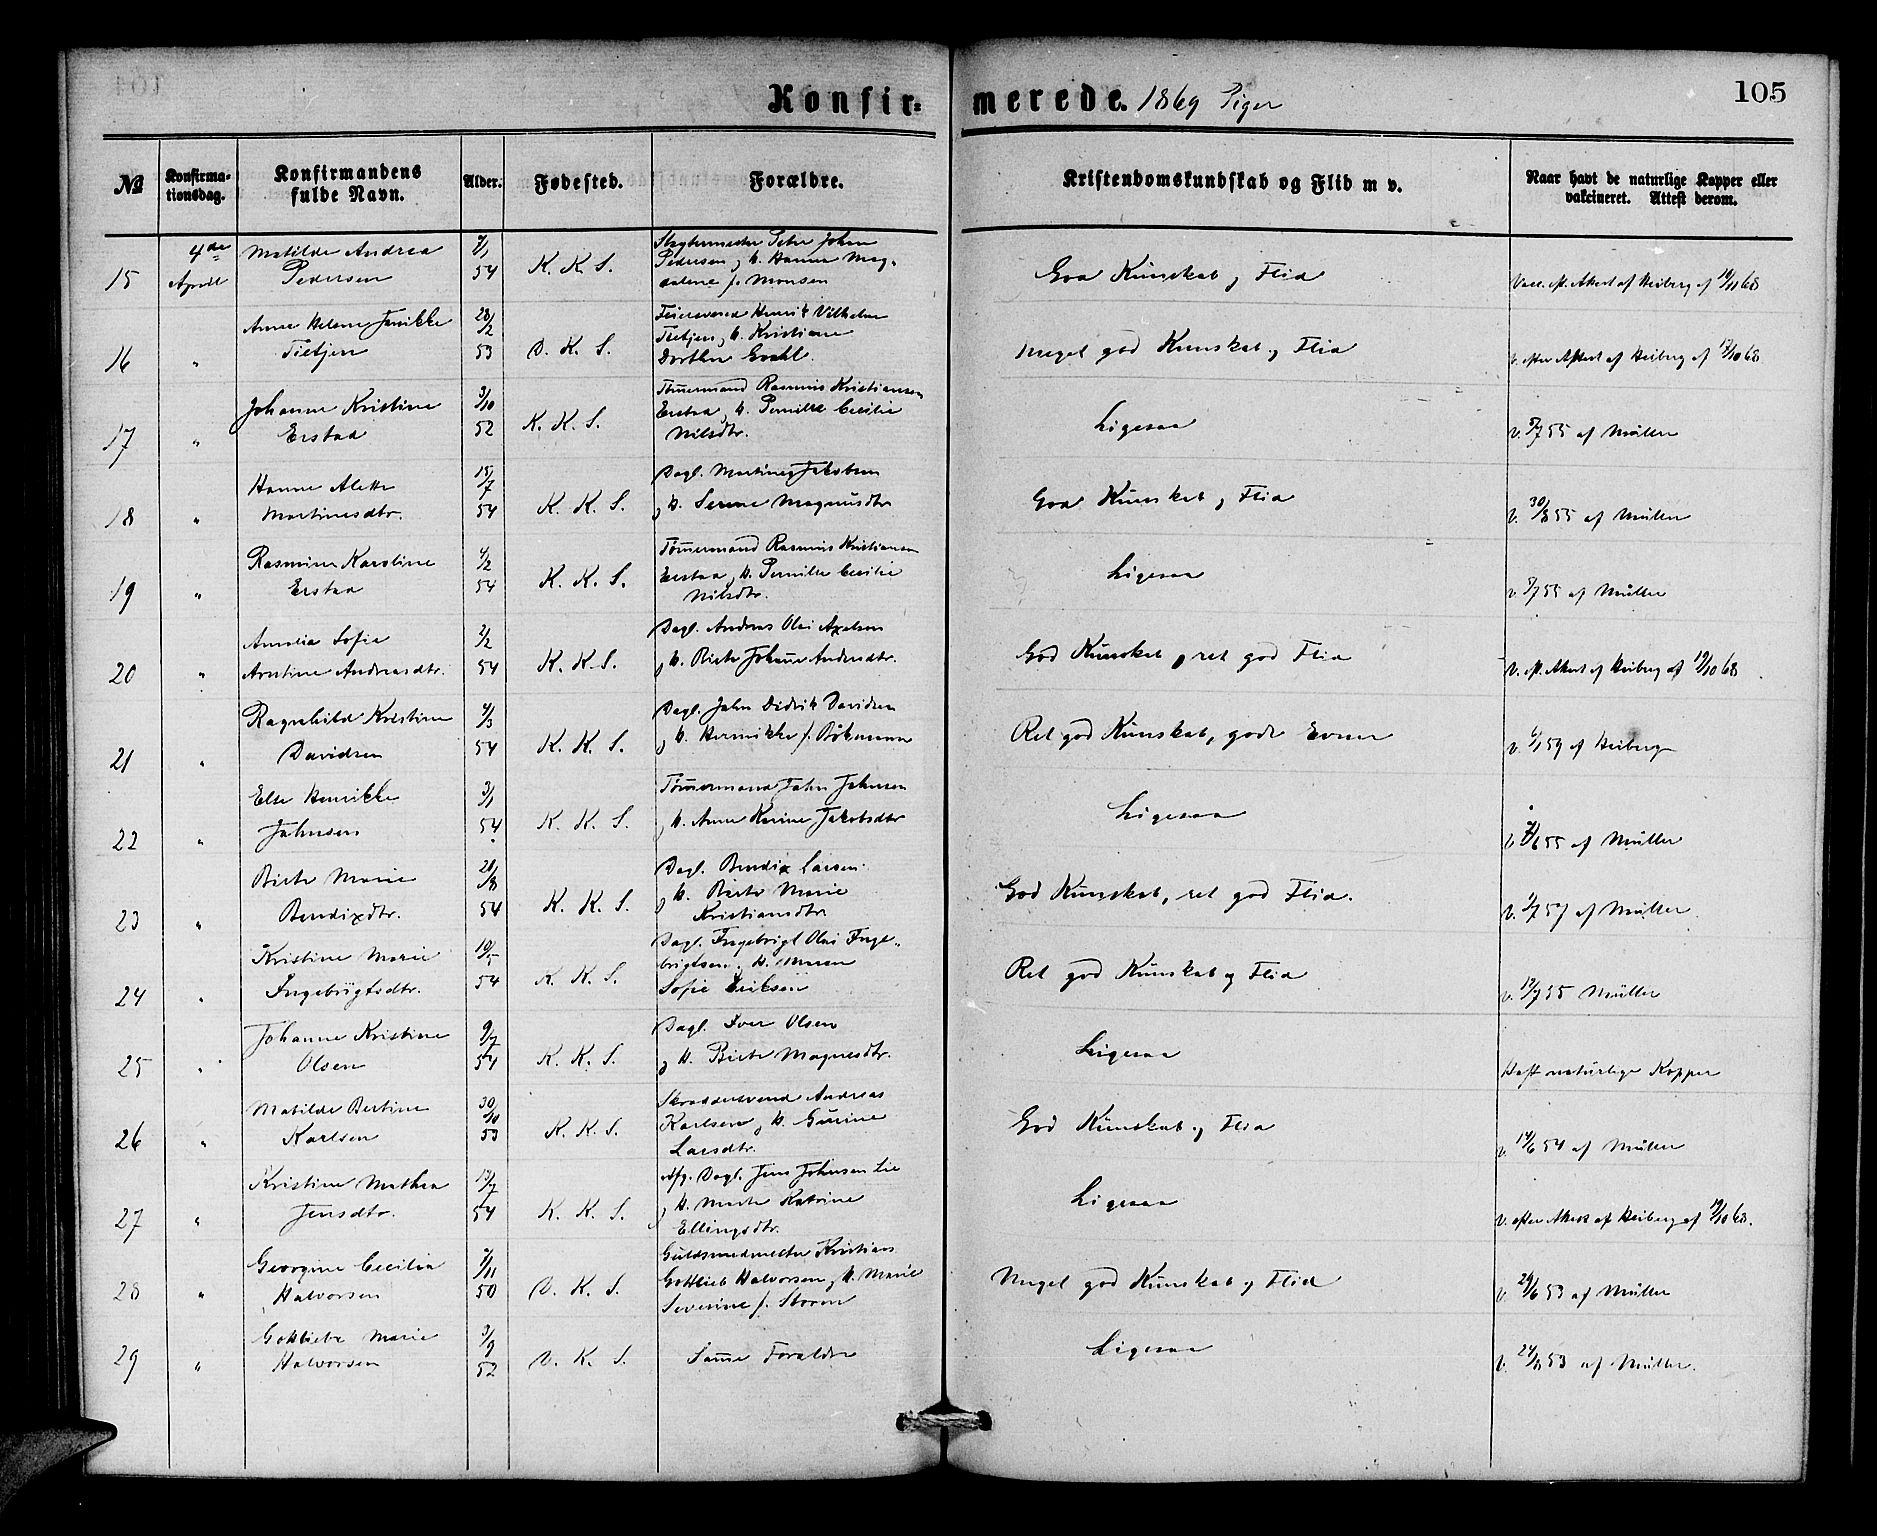 Konfir= merede. 1869 Piger
105
№ Konfirma-tionsdag. Konfirmandens fulde Navn. Alder. Fødested. Forældre. Kristendomskundskab og Flid m v. Naar havt de naturlige Kopper eller vakcineret. Attest derom.
15 4de April Matilde Andrea Pedersen 54 K. K. S. Peter Johan Pedersen og H. Hanna Magdalene f. Monsen God Kunskab og Flid Vacc. eft. Attest af Heiberg af 68
16 " Anne Helene Jenikke Tietjen 28/2 53 D. K. S. Henrik Vilhelm Tietjen, H. Kristiane Dorthea Meget god Kunskab og Flid V. efter Attest af Heiberg af 17/10 68
17 " Johanne Kristine Erstad 3/10 52 K. K. S. Tømmermand Rasmus Kristiansen Erstad, H. Pernille Cecilie Nilsdtr. Ligesaa v. 5/7 55 af Müller
18 " Hanne Alette Martinesdtr. 15/7 54 K. K. S. Dagl. Martines Jakobsen og H. Serene Magnusdtr God Kunskab og Flid v. 30/8 55 af Müller
19 " Rasmine Karoline Erstad 4/2 54 K. K. S. Tømmermand Rasmus Kristiansen Erstad, H. Pernille Cecilie Nilsdtr. Ligesaa v. 5/7 55 af Müller
20 " Amalia Sofie Andreasdtr. 2/2 54 K. K. S. Dagl. Andreas Olai Axelsen og H. Birte Johanne Andersdtr. God Kunskab, ret god Flid V. eft. Attest af Heiberg af 19/10 68
21 " Ragnhild Kristine Davidsen 4/3 54 K. K. S. Dagl. John Didrik Davidsen og H. f. Ret god Kunskab, gode Evner v. 59 af Heiberg
22 " Else Henrikke Johnsen 3/1 54 K. K. S. Tømmermand John Johnsen og H. Anne Karine Jakobsdtr Ligesaa v. 55 af Müller
23 " Birte Marie Bendixdtr. 21/8 54 K. K. S. Dagl. Bendix Larsen og H. Birte Marie Kristiansdtr God Kunskab, ret god Flid. v. 57 af Müller
24 " Kristine Marie Ingebrigtsdtr. 10/5 54 K. K. S. Dagl. Ingebrigt Olai Ingebrigtsen, H. Maren Sofie Eriksen Ret god Kunskab og Flid v. 55 Müller
25 " Johanne Kristine Olsen 9/7 54 K. K. S. Dagl. Iver Olsen og H. Birte Magnesdtr. Ligesaa Haft naturlige Kopper
26 " Matilde Bertine Karlsen 30/10 53 K. K. S. Skræddersvend Andreas Karlsen, H. Gurine Larsdtr. God Kunskab og Flid v. 14/6 54 af Müller
27 " Kristine Mathea Jensdtr. 13/7 54 K. K. S. Afg. Dagl. Jens Johnsen Lie og H. Marte Katrine Ellingsdtr. Ligesaa V. efter Attest af Heiberg af 19/10 68.
28 " Georgine Cecilia Halvorsen 50 D. K. S. Guldsmedmester Kristians Gottlieb Halvorsen, H. Marie Severine f. Storm Meget god Kunskab og Flid v. 29/6 53 af Müller
29 " Gottliebe Marie Halvorsen 3/9 52 D. K. S. Samme Forældre Ligesaa v. 24/8 53 af Müller.